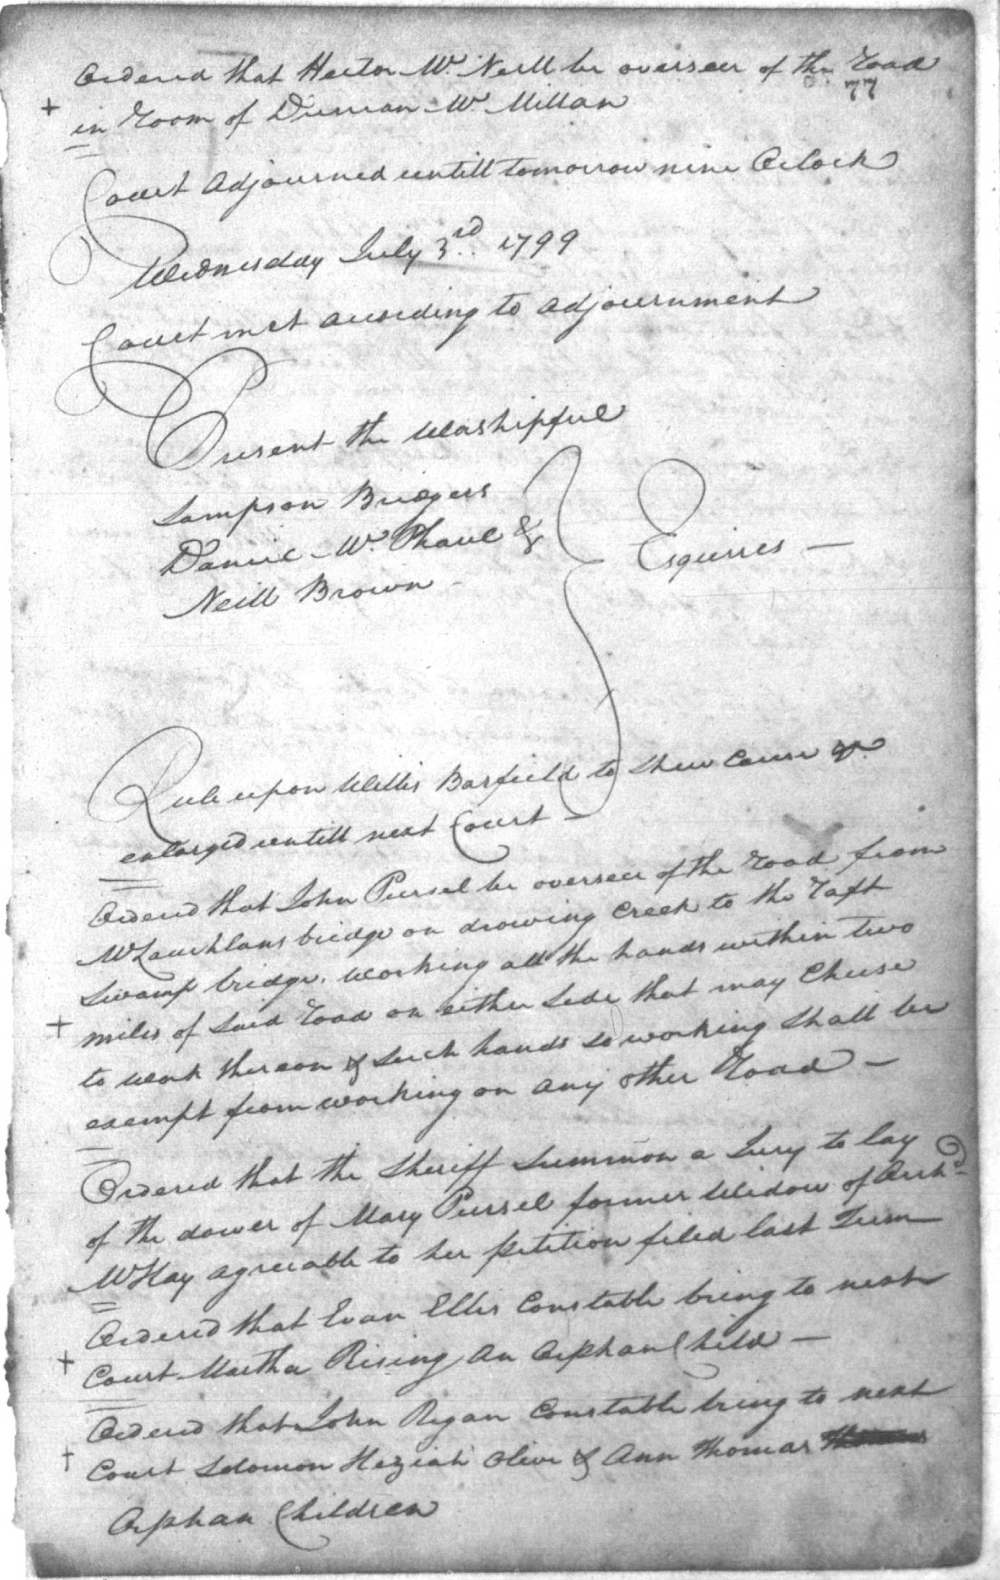 Ordered that Hector McNeill be overseer of the Road
77
+ in Room of Duncan McMillan
Court Adjourned untill tomorrow nine Oclock
Wednesday July 3rd. 1799
Court met according to adjournment
Present the Worshipful
Sampson Bridgers
Daniel McPhaul &
Neill Brown
Esquires —
Rule upon Willis Barfield to Shew Cause &c.
enlarged untill next Court —
Ordered that John Pursel be overseer of the Road from
McLauchlans bridge on drowing Creek to the Raft
Swamp bridge. working all the hands within two
+ miles of Said Road on either Side that may Cheuse
to work thereon & Such hands so working Shall be
exempt from working on any other Road —
Ordered that the Sheriff Summon a Jury to lay
of the dower of Mary Pursel former Widow of Archd
McKay agreeable to her petition filed last Term
Ordered that Evan Ellis Constable bring to next
+ Court Martha Rising An Orphan Child —
Ordered that John Regan Constable bring to next
+ Court Solomon Heziah Olive & Ann Thomas
Orphan Children